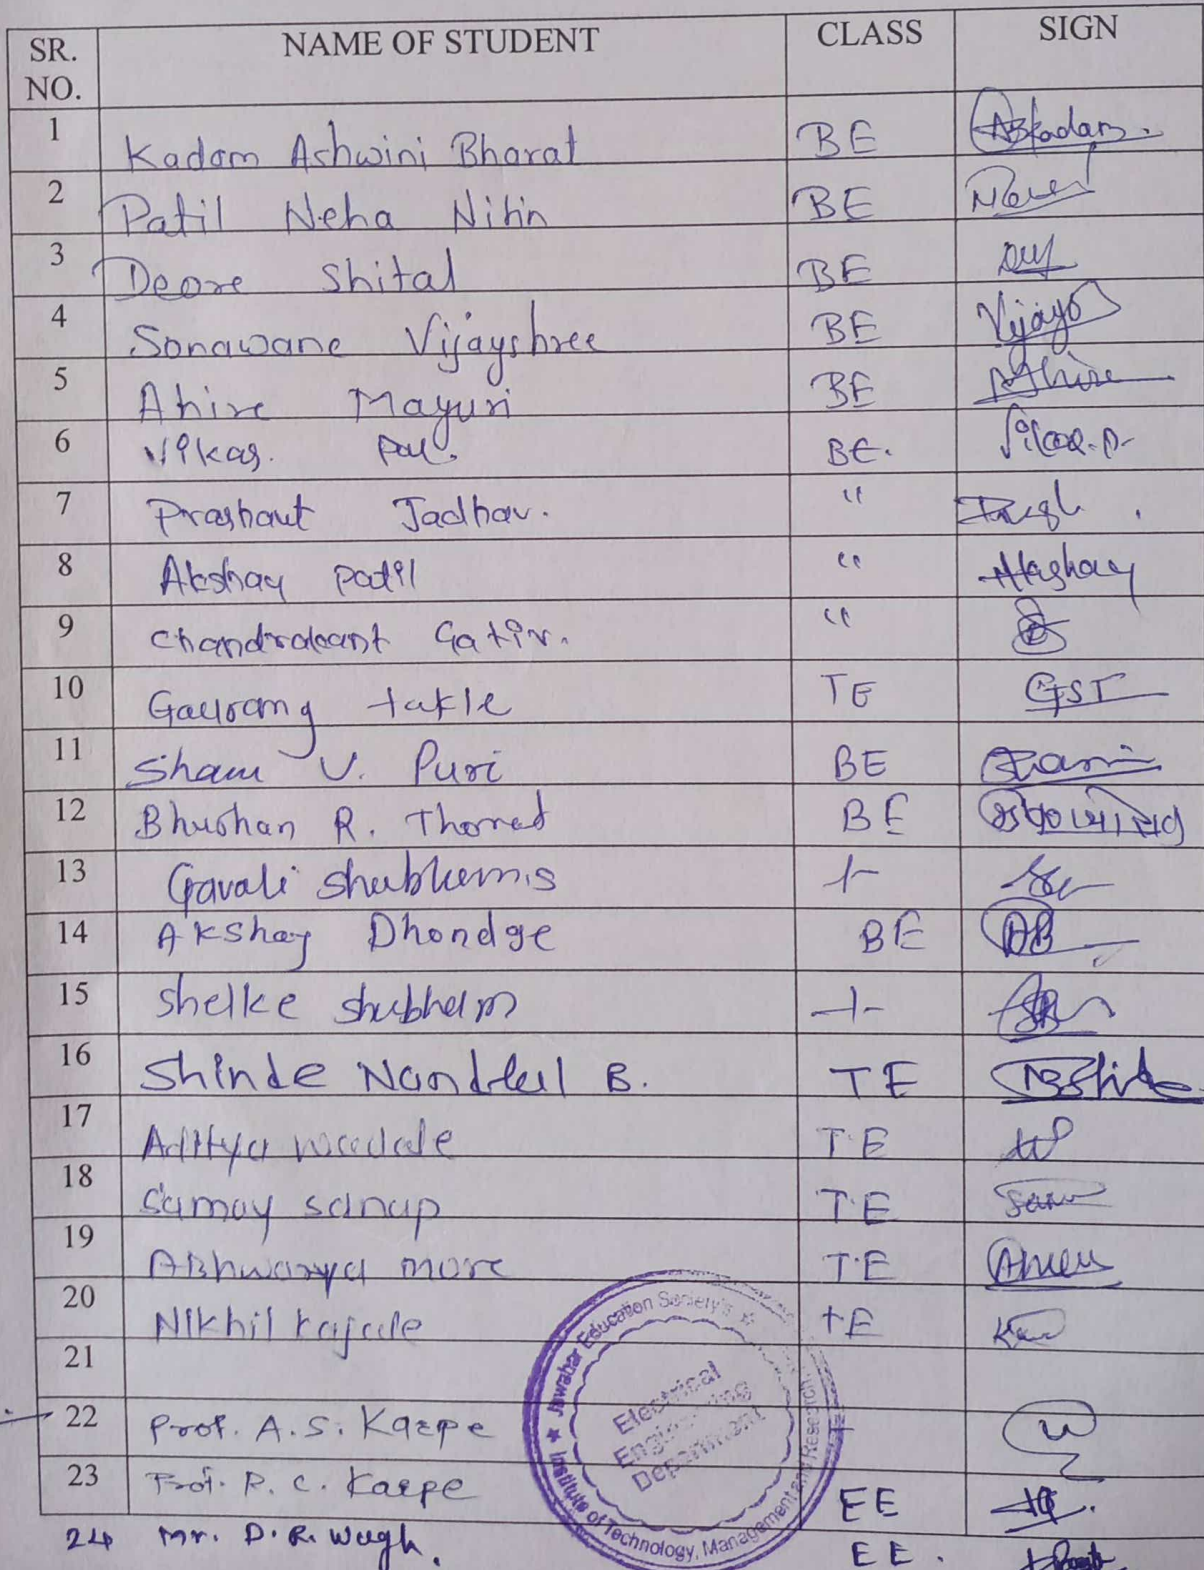 SR. NO. NAME OF STUDENT CLASS SIGN
1 Kadam Ashwini Bharat BE ABKadam.
2 Patil Neha Nitin BE
3 Deore Shital BE
4 Sonawane Vijayshree BE Vijay
5 Ahire Mayuri BE Ahire
6 Vikas. Pal. BE. Vikas.P.
7 Prashant Jadhav. "
8 Akshay Patil " Akshay
9 Chandrakant Gatir. "
10 Gaurang takle TE GST
11 Sham V. Puri BE
12 Bhushan R. Thorat BE
13 Gavali Shubham.S -1-
14 Akshay Dhondge BE AB
15 Shelke Shubham -1-
16 Shinde Nandlal B. TE
17 Aditya T.E
18 Samay Sanap T.E
19 more T.E
20 Nikhil TE
21
22 Prof. A.S. Karpe
23 Prof. P. C. Karpe EE
24 Mr. D.R. Wagh. EE.
Jawahar Education Society's
Institute of Technology, Management and Research
Electrical
Engineering
Department